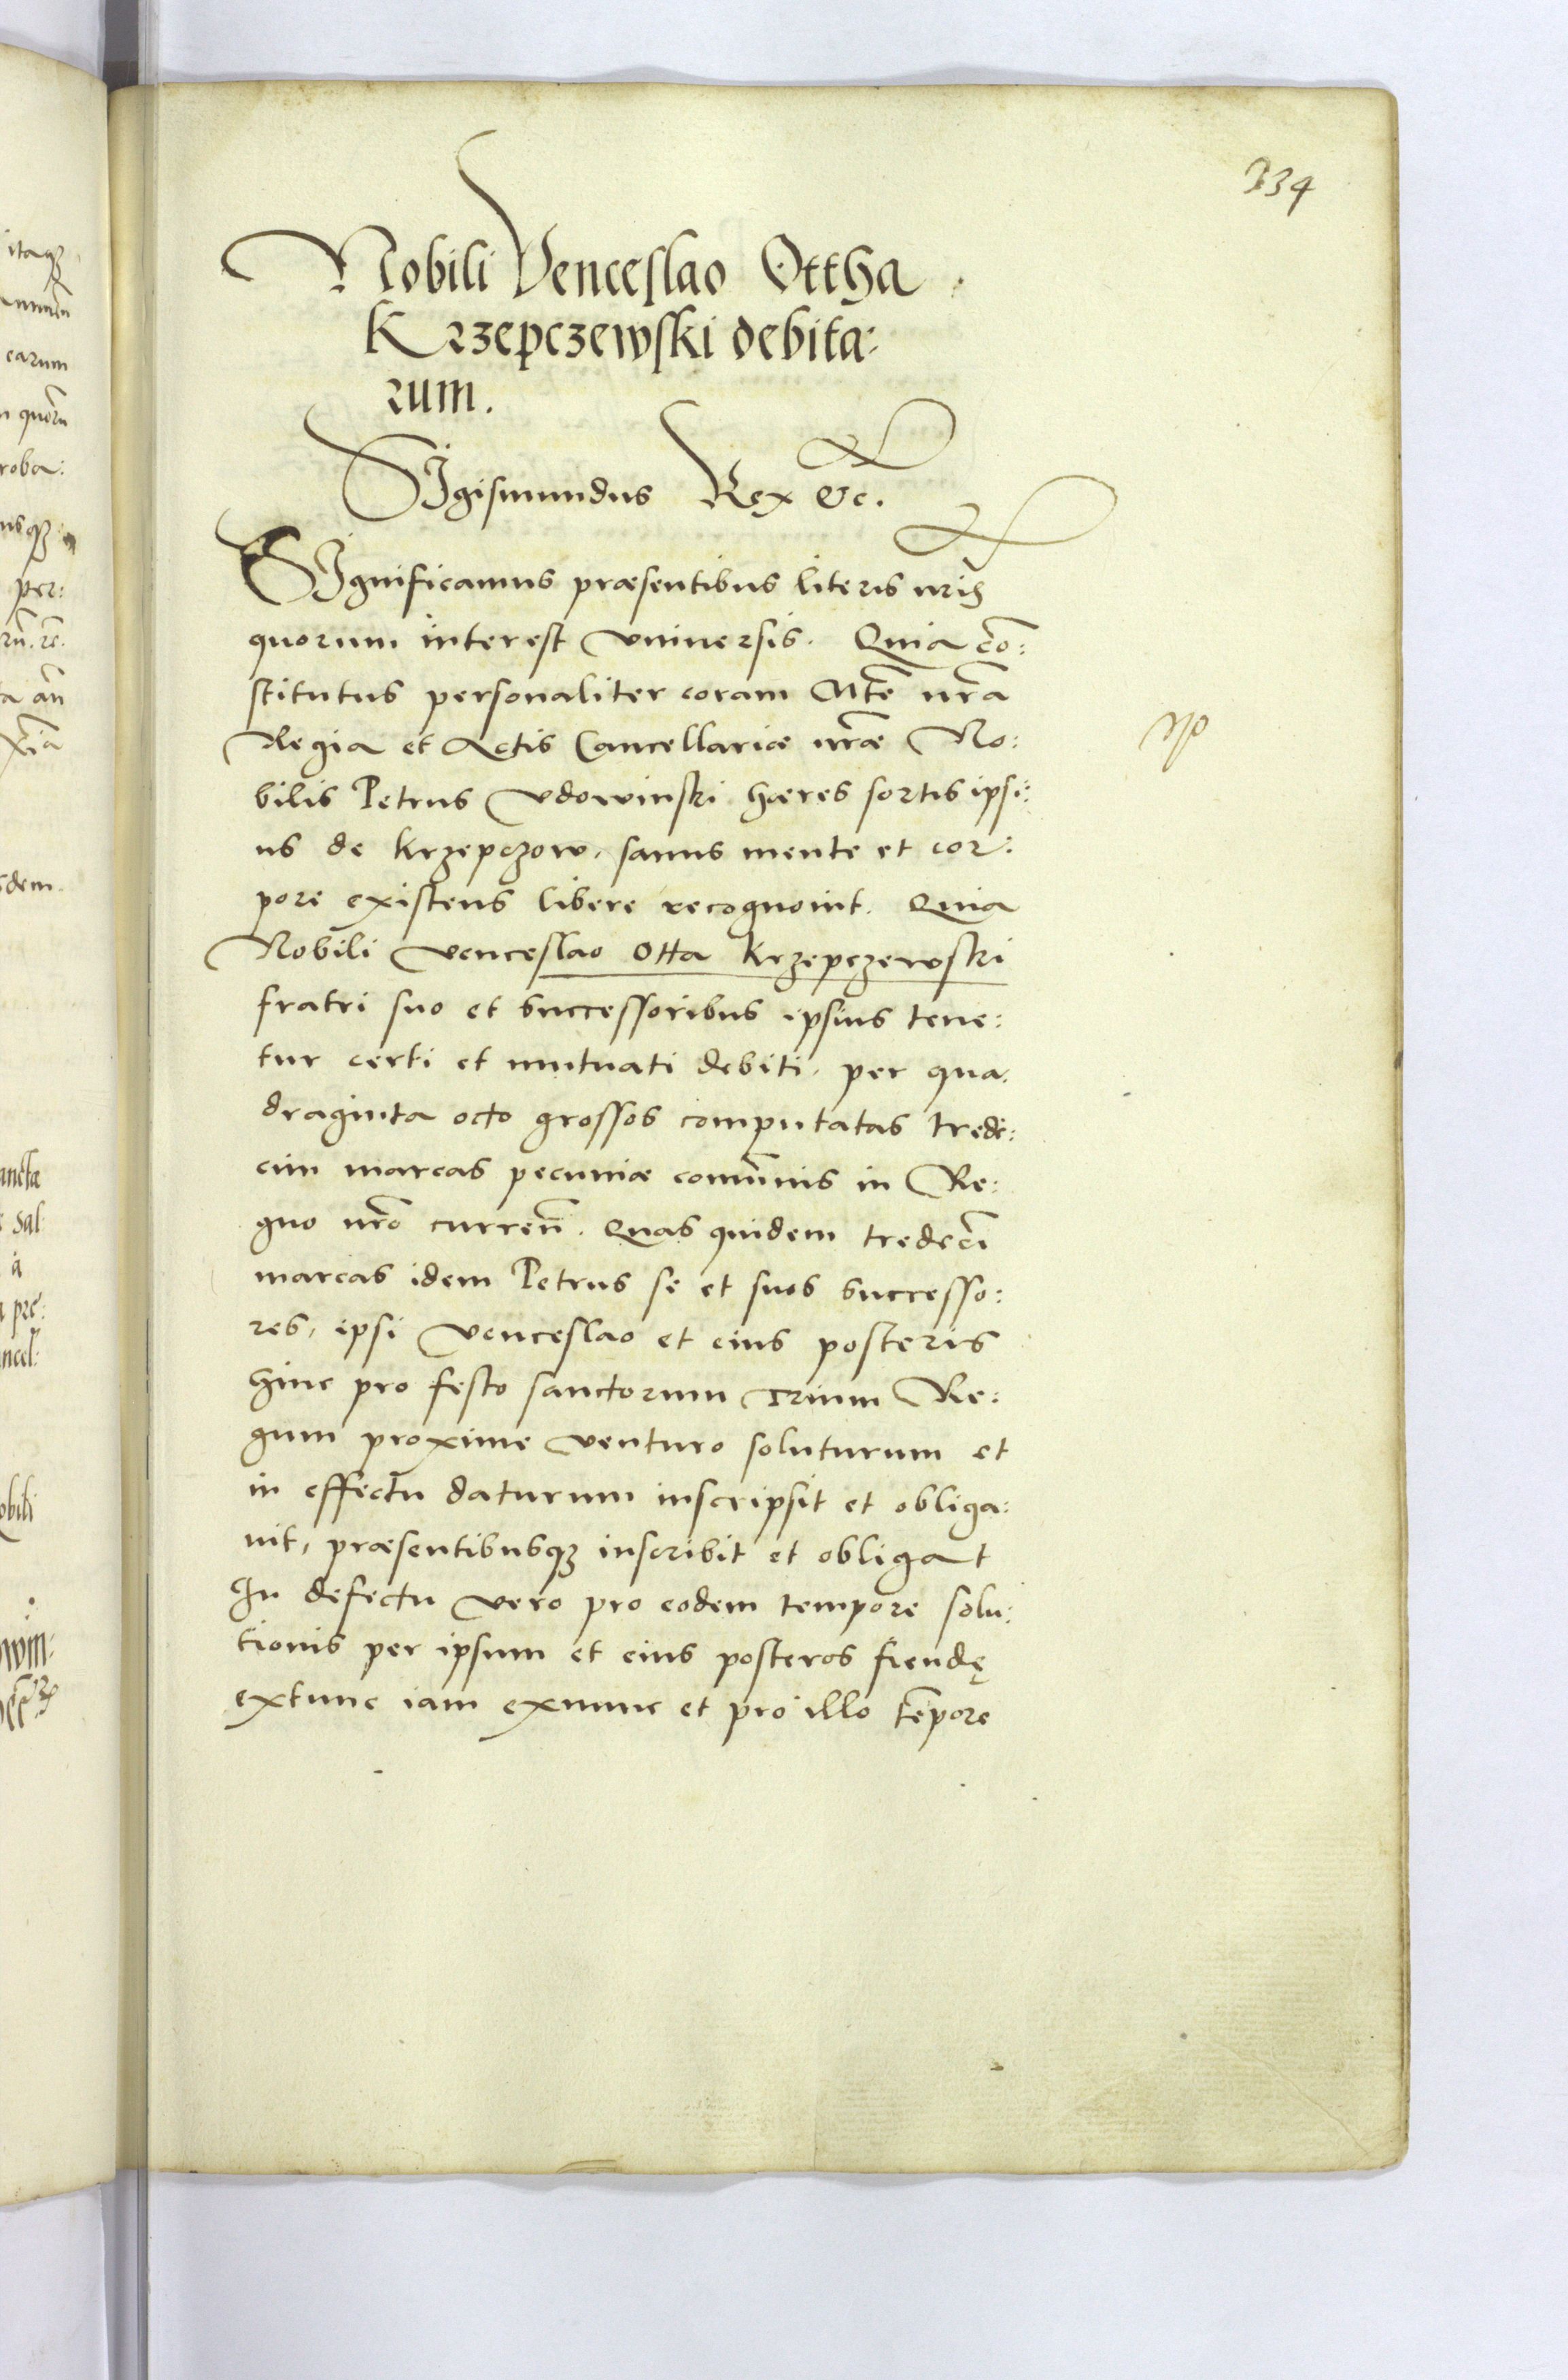 334
Nobili Venceslao Ottha
Krzepczewski debita:
rum.
SIgismundus Rex &c.
SIgnificamus præsentibus literis nris
quorum interest vniuersis. Quia cõ:
stitutus personaliter coram Mte nra
Regia et Actis Cancellariæ nræ No:
bilis Petrus Vdowinski hæres sortis ipsi:
us de Krzepczow, sanus mente et cor:
pore existens libere recognouit. Quia
Nobili Venceslao Otta Krzepczewski
fratri suo et successoribus ipsius tene:
tur certi et mutuati debiti, per qua:
draginta octo grossos computatas trede:
cim marcas pecuniæ comunis in Re:
gno nro curren. Quas quidem tredeci
marcas idem Petrus se et suos successo:
res, ipsi Venceslao et eius posteris
hinc pro festo sanctorum Trium Re:
gum proxime venturo soluturum et
in effectu daturum inscripsit et obliga:
uit, præsentibusqз inscribit et obligat
In defectu vero pro eodem tempore solu:
tionis per ipsum et eius posteros fiendę
extunc iam exnunc et pro illo tẽpore